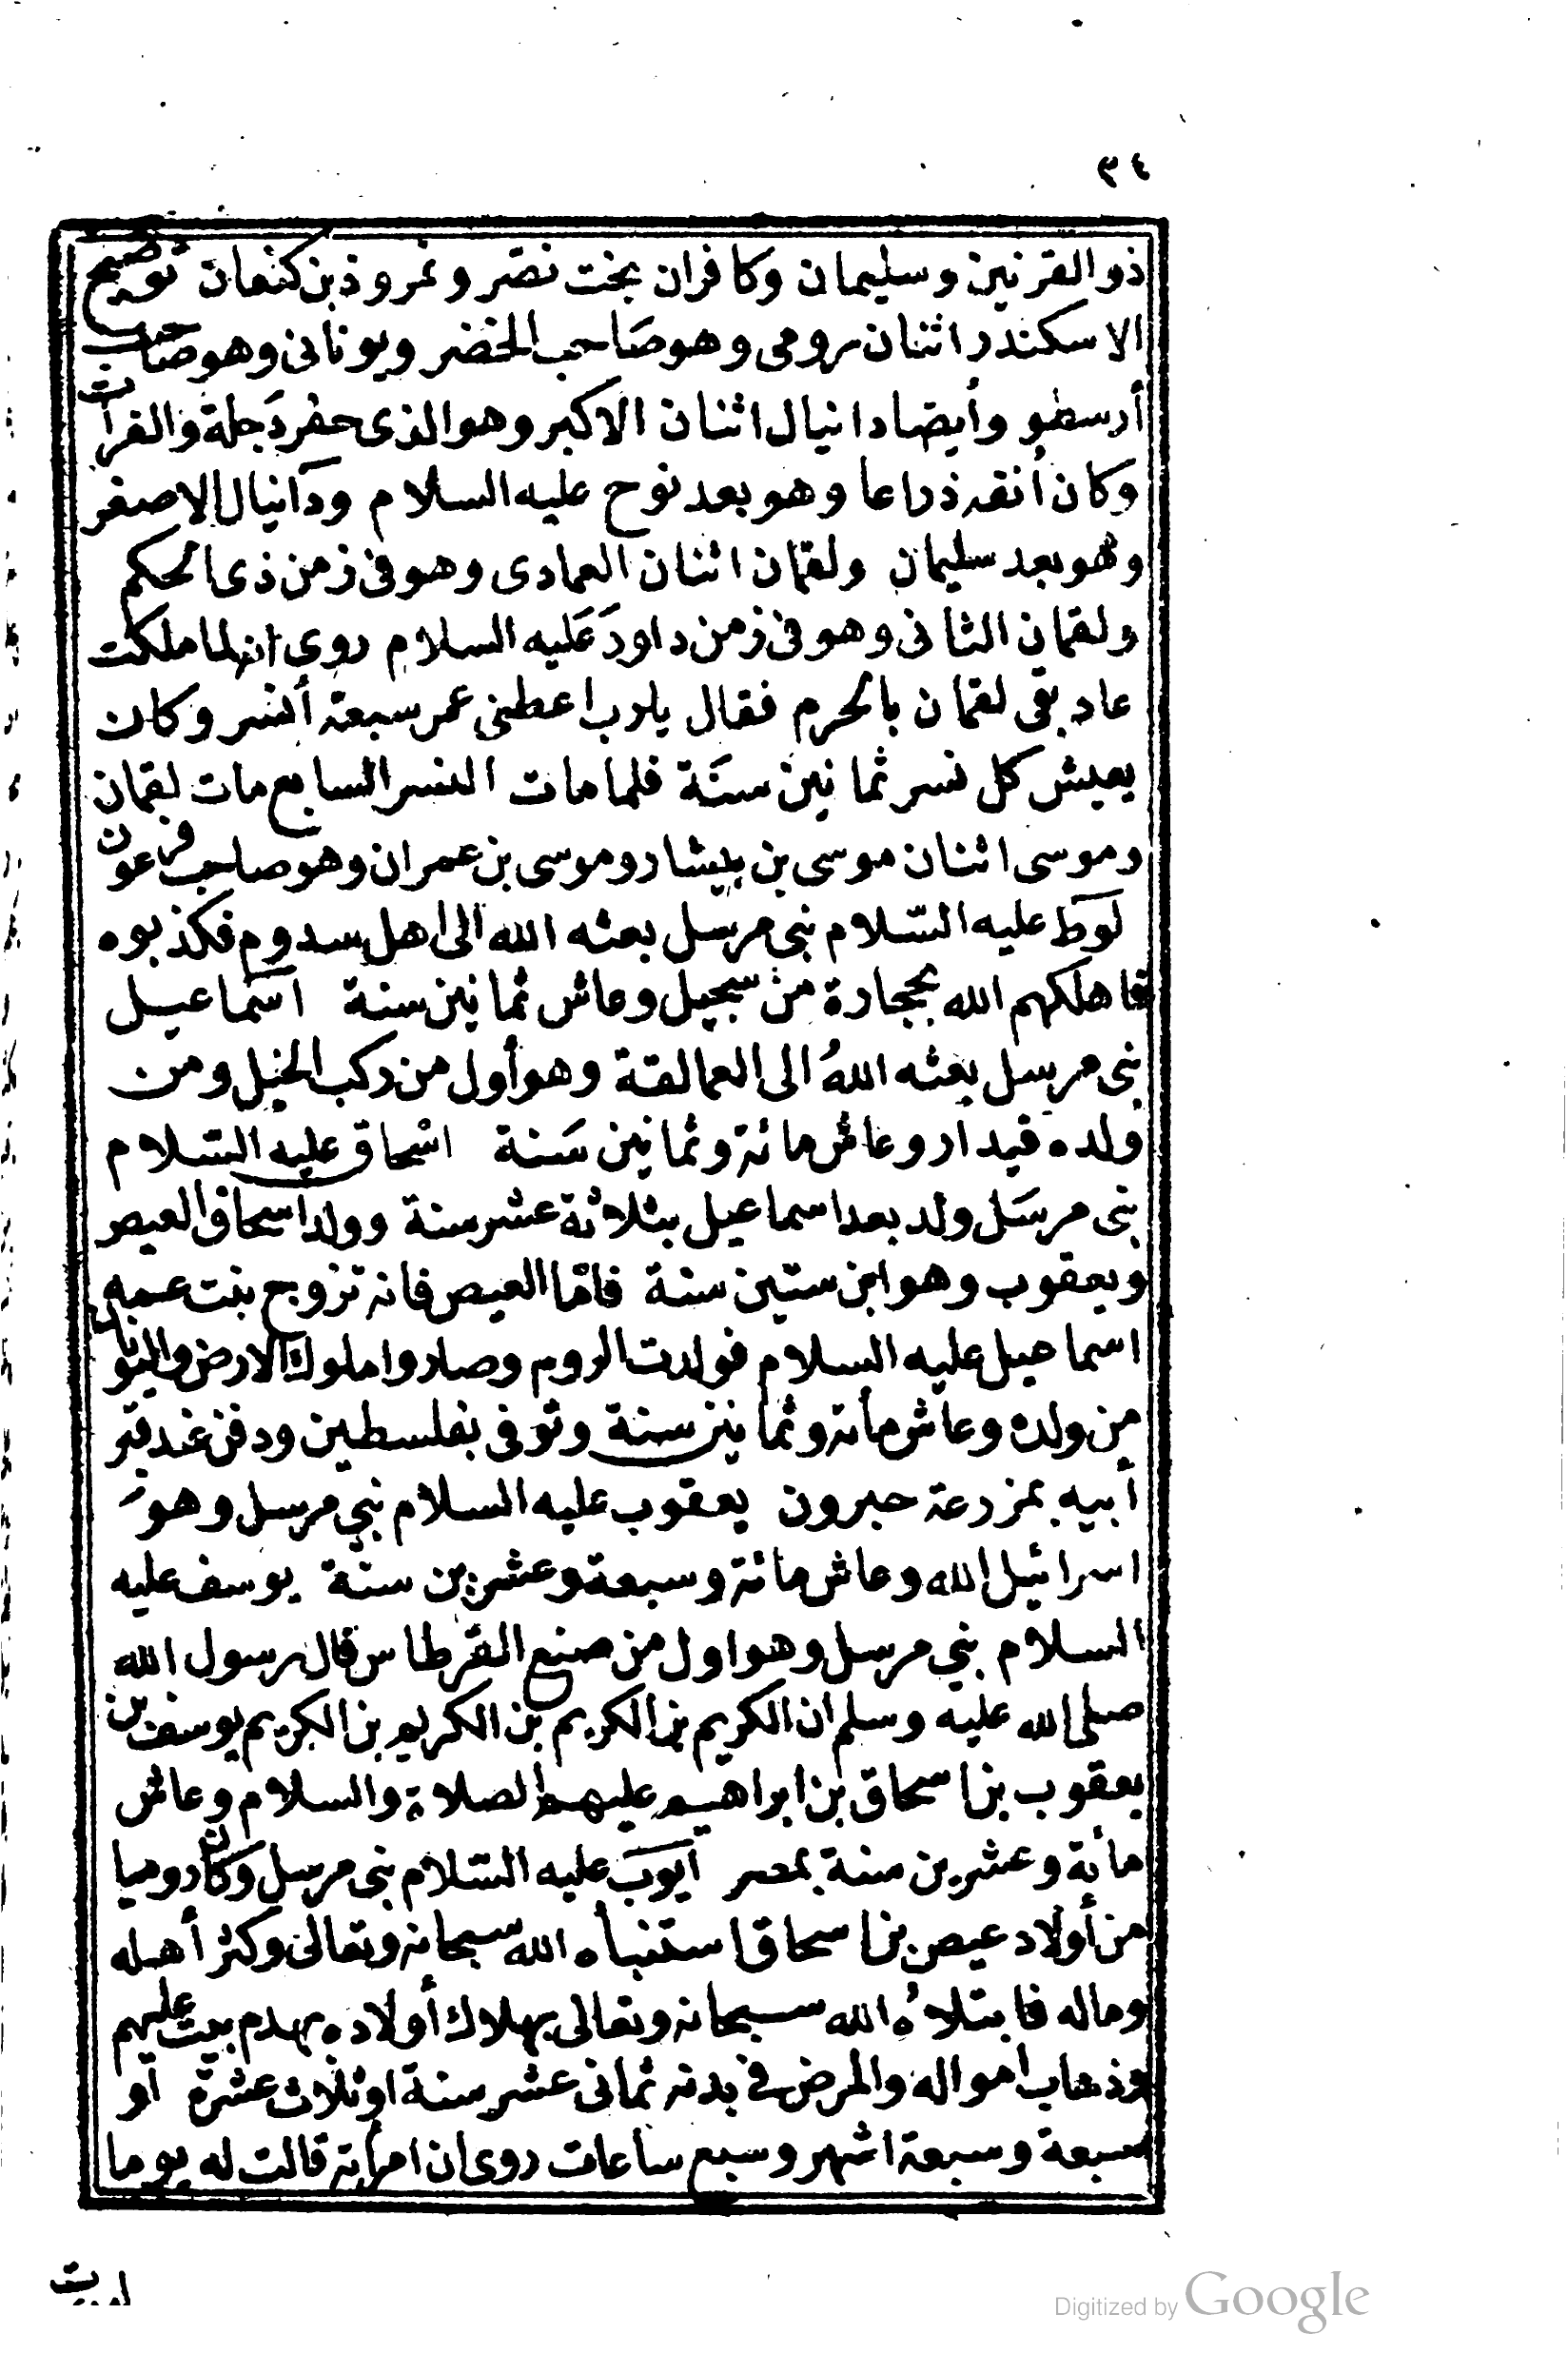 ٣٤
ذو القرنين وسليمان وكافران بخت نصر ونمروذ بن كنعان توضيح
الاسكندر اثنان رومى وهو صاحب الخضر ويونانى وهو صاحب
أرسطو وأيضا دانيال اثنان الاكبر وهو الذى حفر دجلة والفرات
وكان أنفه ذراعا وهو بعد نوح عليه السلام ودانيال الاصغر
وهو بعد سليمان ولقمان اثنان العادى وهو فى زمن ذى الحكم
ولقمان الثانى وهو فى زمن داود عليه السلام روى انه لما ملكت
عاد بقى لقمان بالحرم فقال يارب اعطنى عمر سبعة أنسر وكان
يعيش كل نسر ثمانين سنة فلما مات النسر السابع مات لقمان
وموسى اثنان موسى بن بيشار وموسى بن عمران وهو صاحب فرعون
لوط عليه السلام نبى مرسل بعثه الله الى اهل سدوم فكذبوه
فاهلكهم الله بحجارة من سجيل وعاش ثمانين سنة اسماعيل
نبى مرسل بعثه الله الى العمالقة وهو أول من ركب الخيل ومن
ولده قيدار وعاش مائة وثمانين سنة اسحاق عليه السلام
نبى مرسل ولد بعد اسماعيل بثلاثة عشر سنة وولد اسحاق العيص
ويعقوب وهو ابن ستين سنة فاما العيص فانه تزوج بنت عمه
اسماعيل عليه السلام فولدت الروم وصاروا ملوك الارض واليونان
من ولده وعاش مأة وثمانين سنة وتوفى بفلسطين ودفن عند قبر
أبيه بمزرعة حبرون يعقوب عليه السلام نبي مرسل وهو
اسرائيل الله وعاش مائة وسبعة وعشرين سنة يوسف عليه
السلام نبي مرسل وهو اول من صنع القرطاس قال رسول الله
صلى الله عليه وسلم ان الكريم بن الكريم بن الكريم بن الكريم يوسف بن
يعقوب بن اسحاق بن ابراهيم عليهم الصلاة والسلام وعاش
مأة وعشرين سنة بمصر أيوب عليه السلام نبى مرسل وكان روميا
من أولاد عيص بن اسحاق استنبأه الله سبحانه وتعالى وكثر أهله
وماله فابتلاه الله سبحانه وتعالى بهلاك أولاده بهدم بيت عليهم
وذهاب امواله والمرض فى بدنه ثمانى عشر سنة او ثلاث عشرة أو
سبعة وسبعة اشهر وسبع ساعات روى ان امرأته قالت له يوما
Digitized by Google